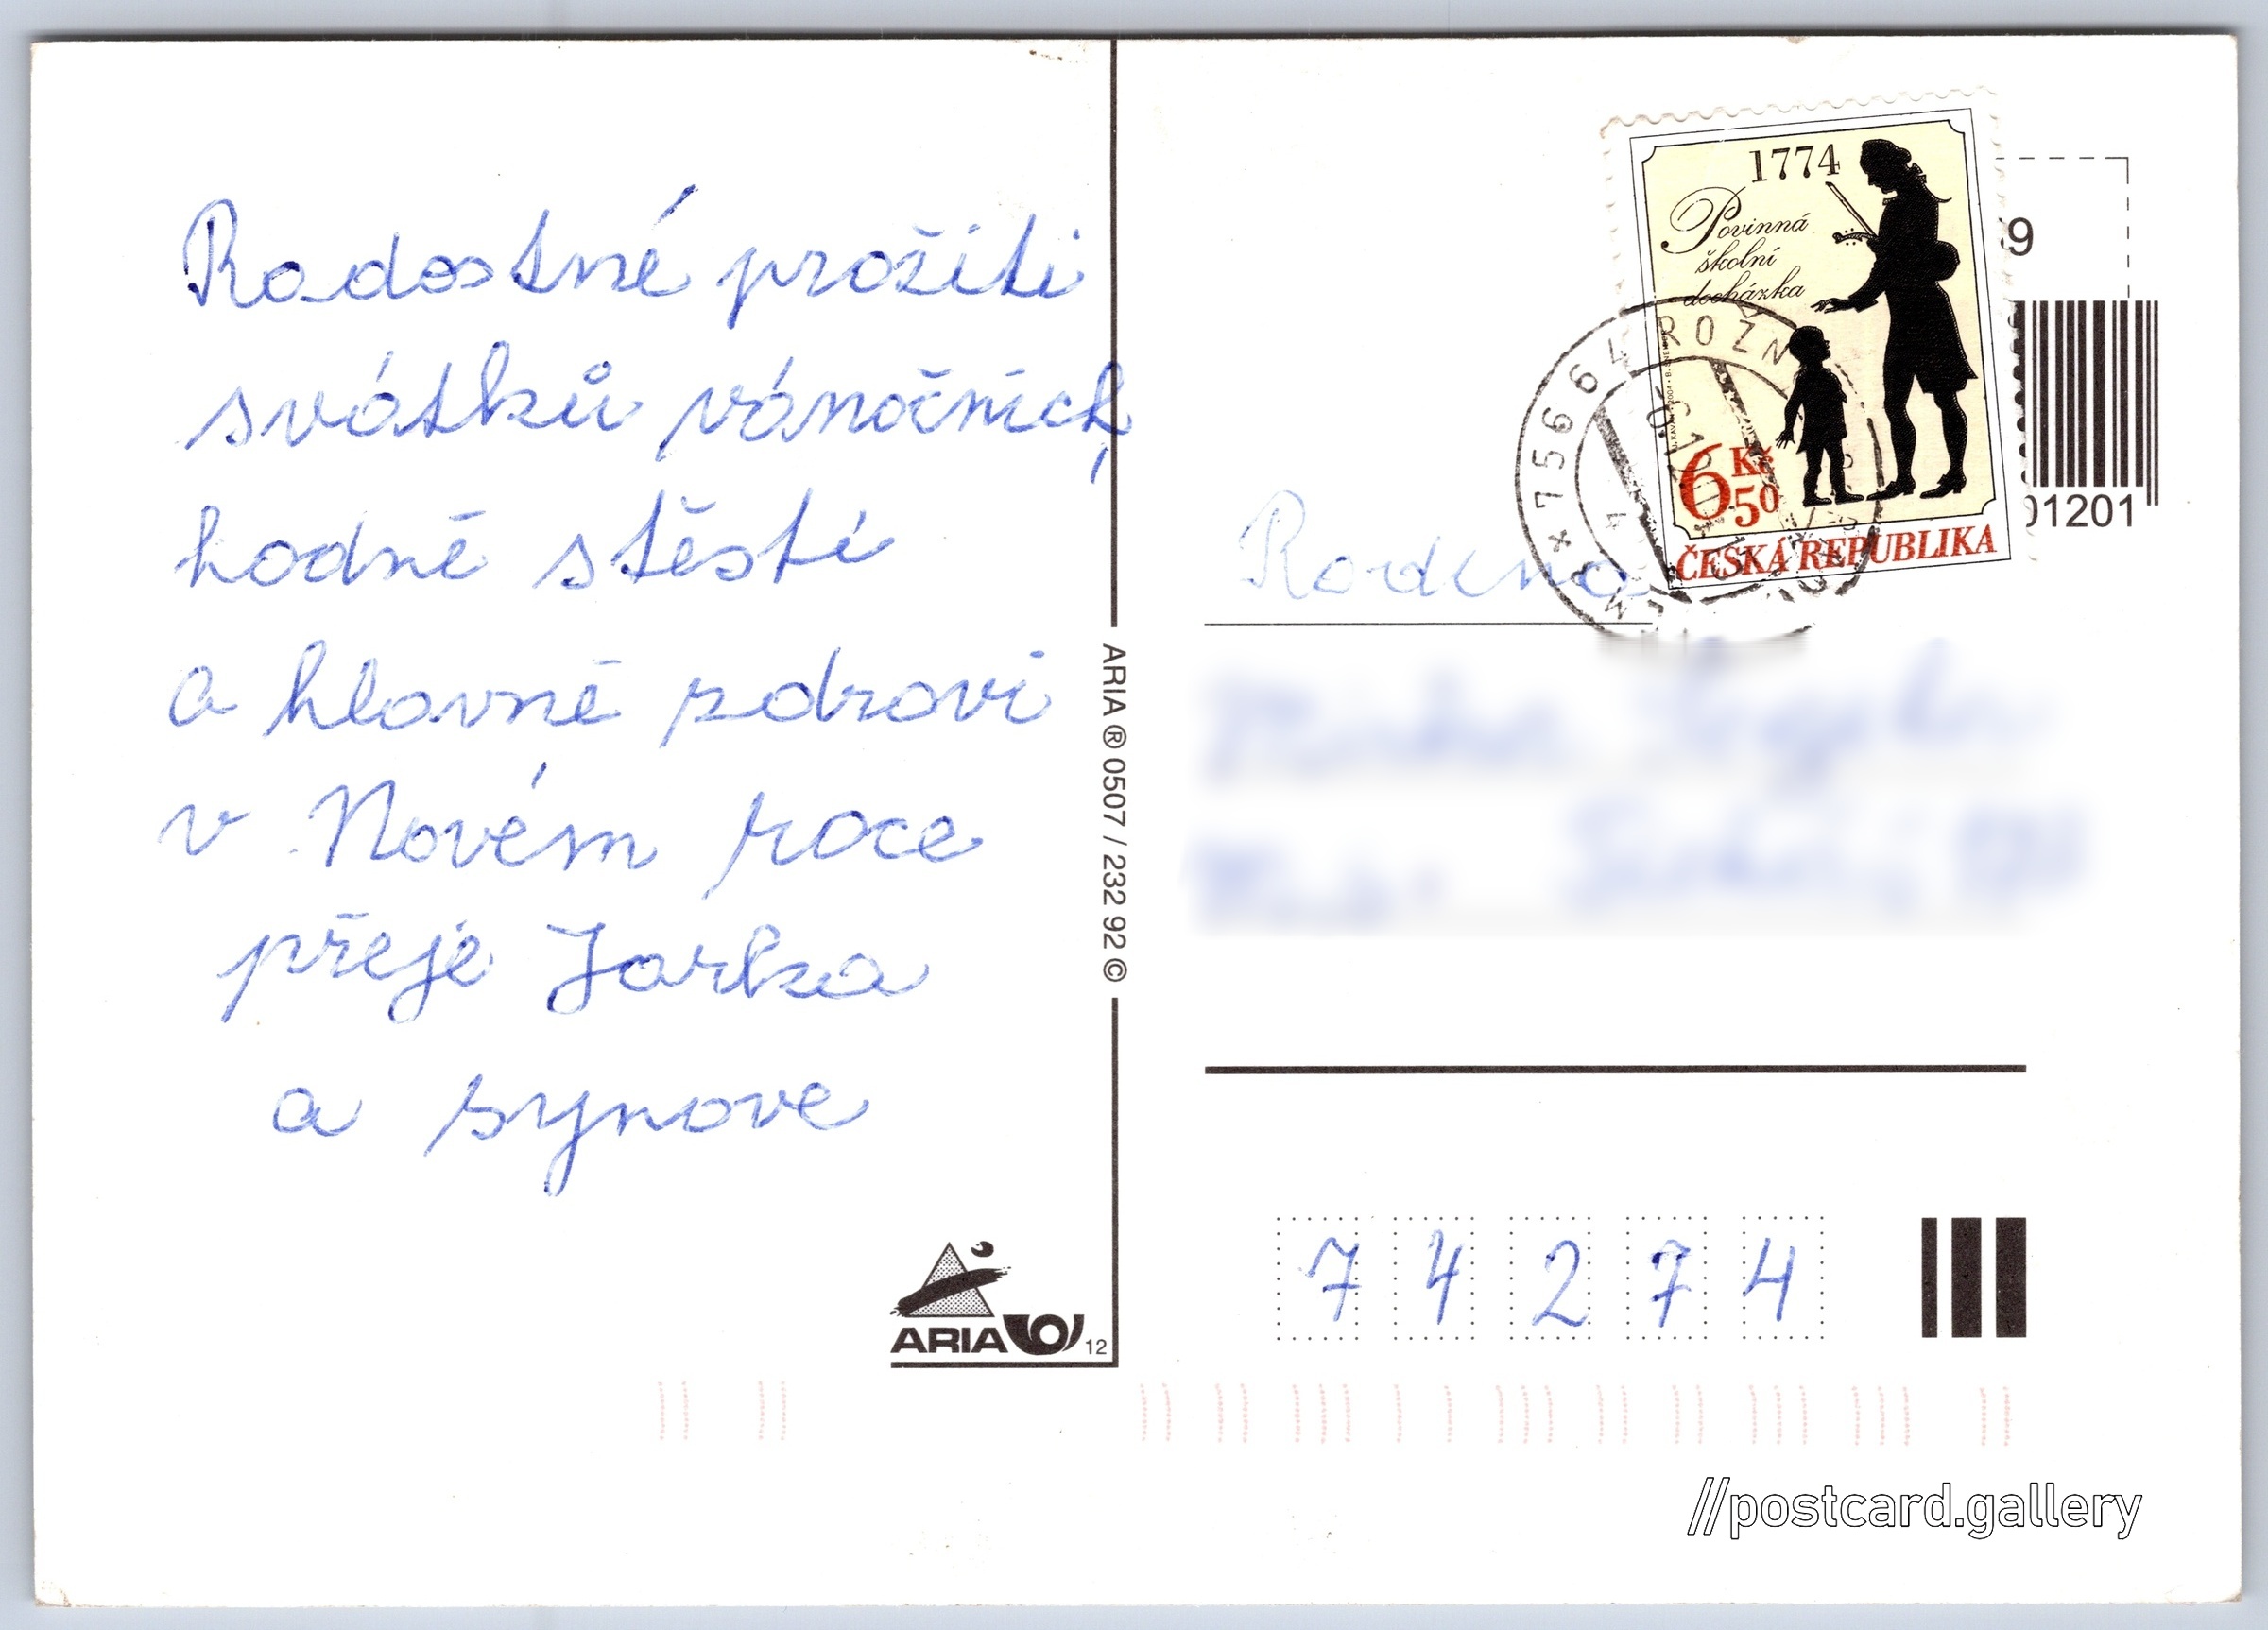 Radostné prožiti
svátků vánočních,
hodně stěstí
a hlavně zdravi
v Novém roce
přeje Jarka
a synove
ARIA ® 0507 / 232 92 ©
ARIA 12
1774
Povinná
školní
docházka
6 Kč 50
ČESKÁ REPUBLIKA
756 64 ROŽN
9
01201
Rodina
74274
//postcard.gallery